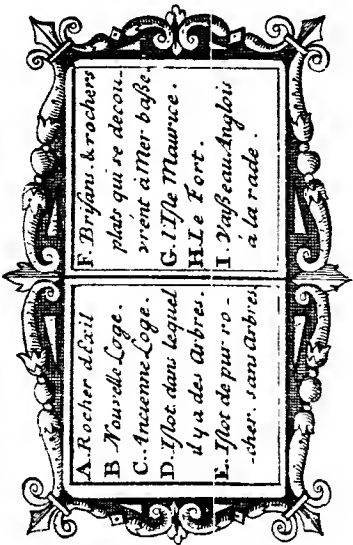 A. Rocher d'Exil
B Nouvelle Loge.
C. Ancienne Loge.
D. Islot dans lequel
il y a des Arbres.
E. Islot de pur ro-
-cher. sans Arbres
F. Brisans & rochers
plats qui se decou-
vrent à Mer basse.
G. l'Isle Maurice.
H. Le Fort.
I. Vaisseau Anglois
à la rade.